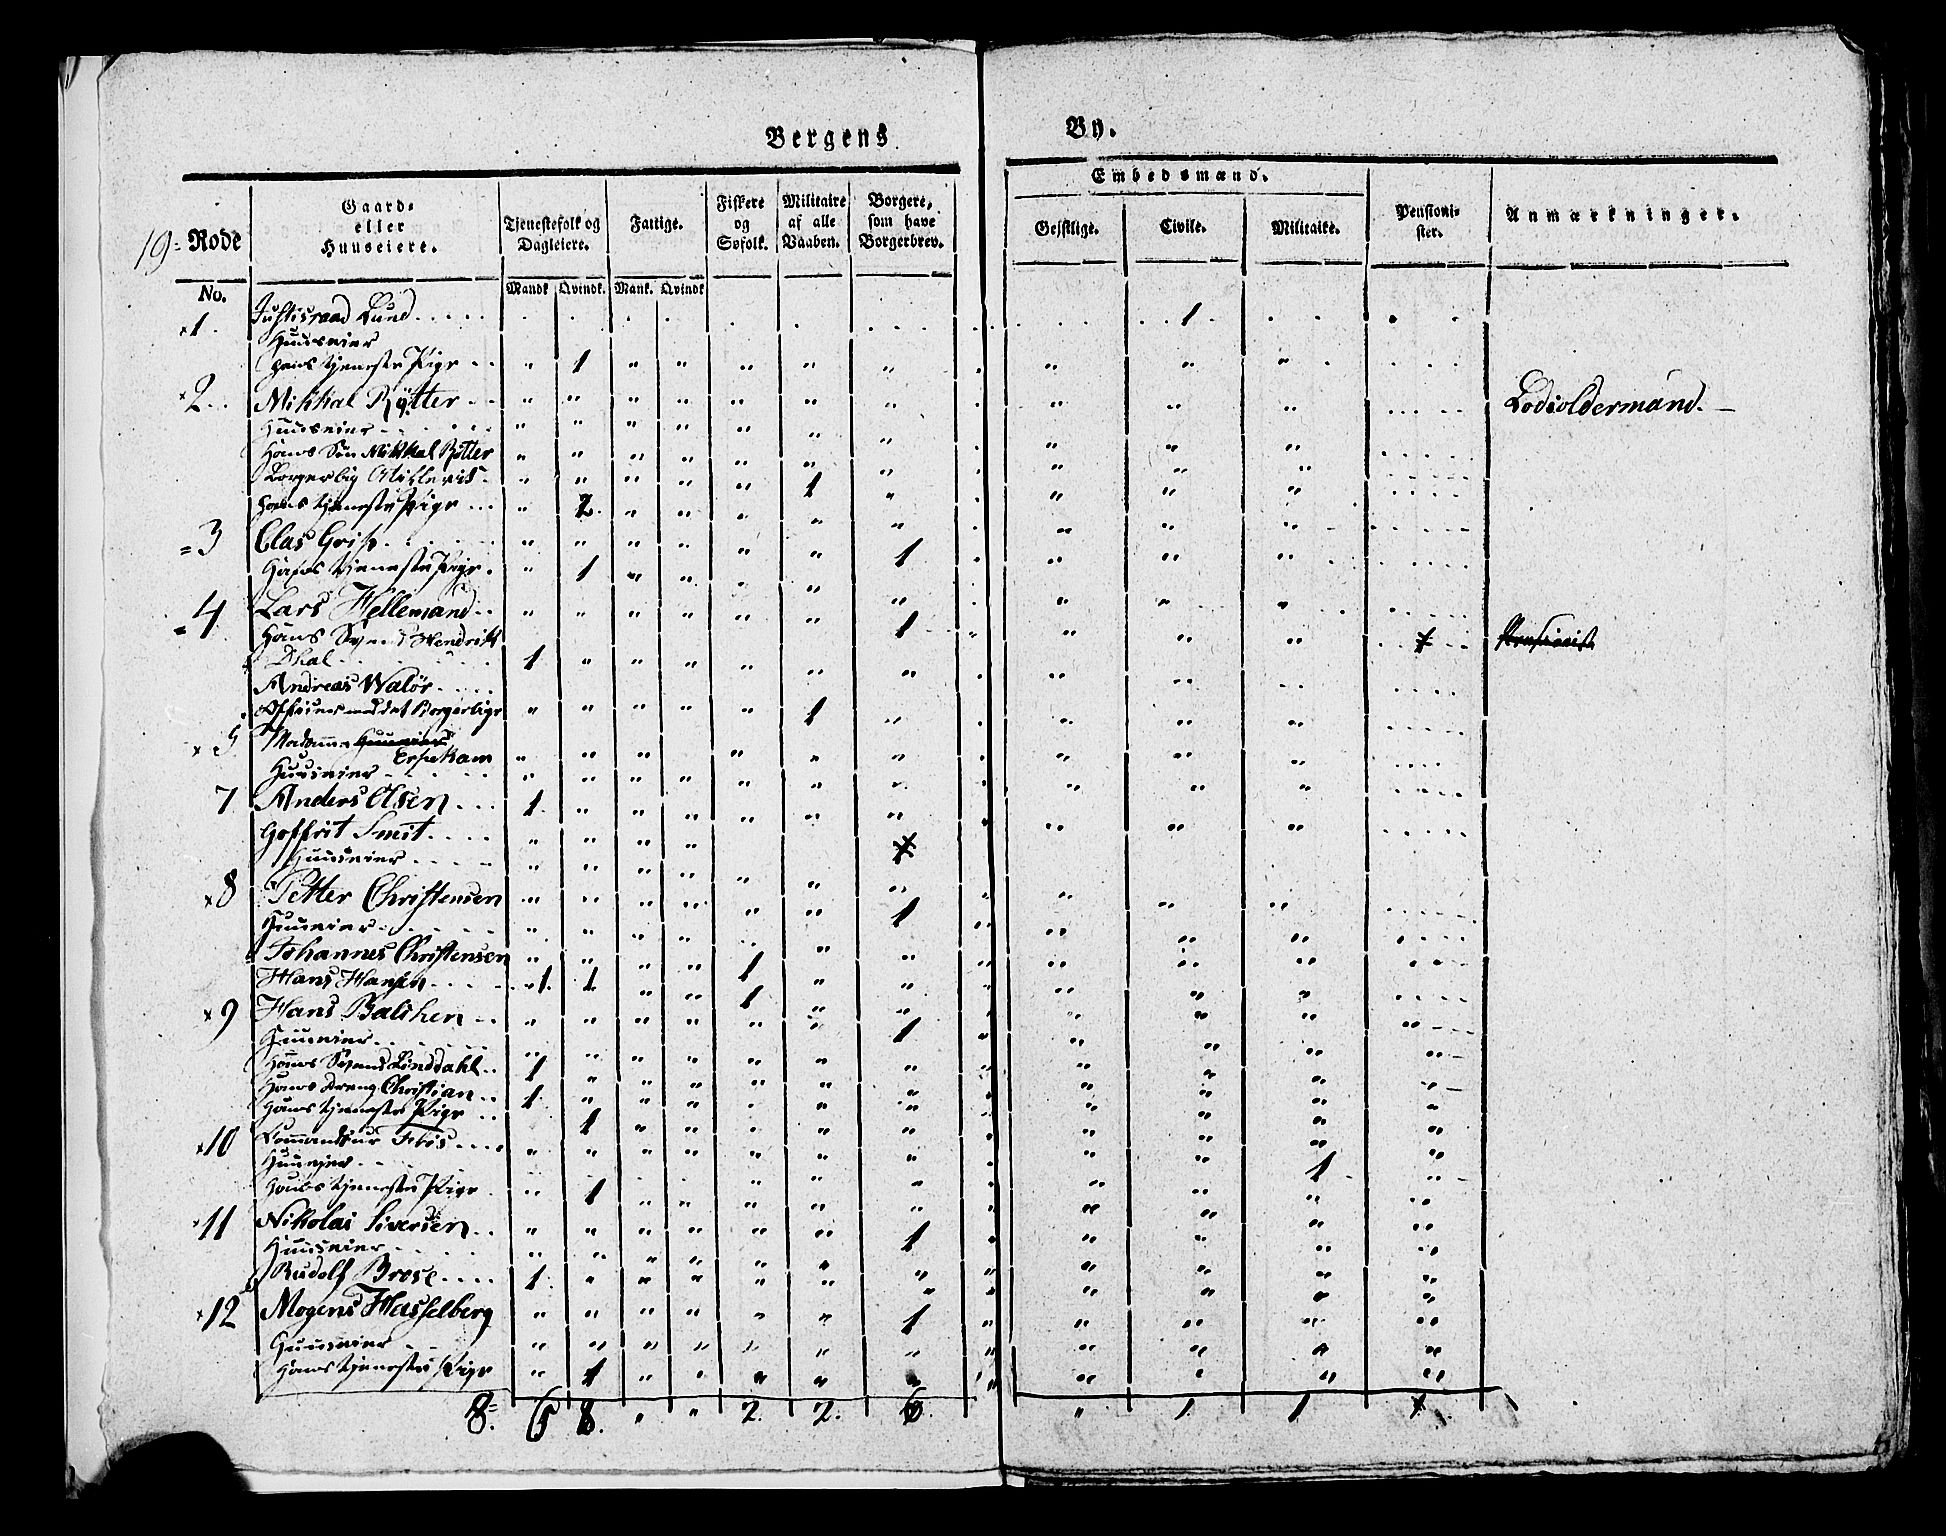 Bergens By.
19= Rode
Gaard-
eller
Huuseiere.
Tjenestefolk og
Dagleiere.
Fattige.
Fiskere
og
Søfolk.
Militaire
af alle
Vaaben.
Borgere,
som have
Borgerbrev.
Embedsmænd.
Geistlige.
Civile.
Militaire.
Pensioni-
ster.
Anmærkninger.
No.
Mandk Qvindk. Mank. Qvindk
×1. Justisraad Lund 1
Huuseier
Hans tjeneste Pige 1
×2. Mikkal Rÿtter Lodsoldermand.
Huuseier
Hans Søn Mikkal Rÿtter
Borgerlig 1
Hans tjeneste Pige 2.
=3 Clas Gris 1
Hans tjeneste Pige 1
=4. Lars Hellemand 1
Hans Svend Hendrik
Dhal 1
Andreas Waløe
Officier ved det Borgerlige 1
×5 Madame
Huuseier
7 Anders Olsen 1
Goffrit Smit
Huuseier
×8 Petter Christensen 1
Huuseier
Johannes Christensen 1
Hans Hansen 1. 1 1
×9 Hans Balchen 1
Huuseier
Hans Svend Linddahl 1
Hans Dreng Christian 1
Hans tjeneste Pige 1
×10 Commandeur Fris 1
Huuseier
Hans tjeneste Pige 1
×11 Nikolai Siversen 1
Huuseier
Rudolf Brose 1
×12 Mogens Hasselberg 1
Huuseier
Hans tjeneste Pige 1
8= 6 8. " " 2. 2. 6. " 1 1